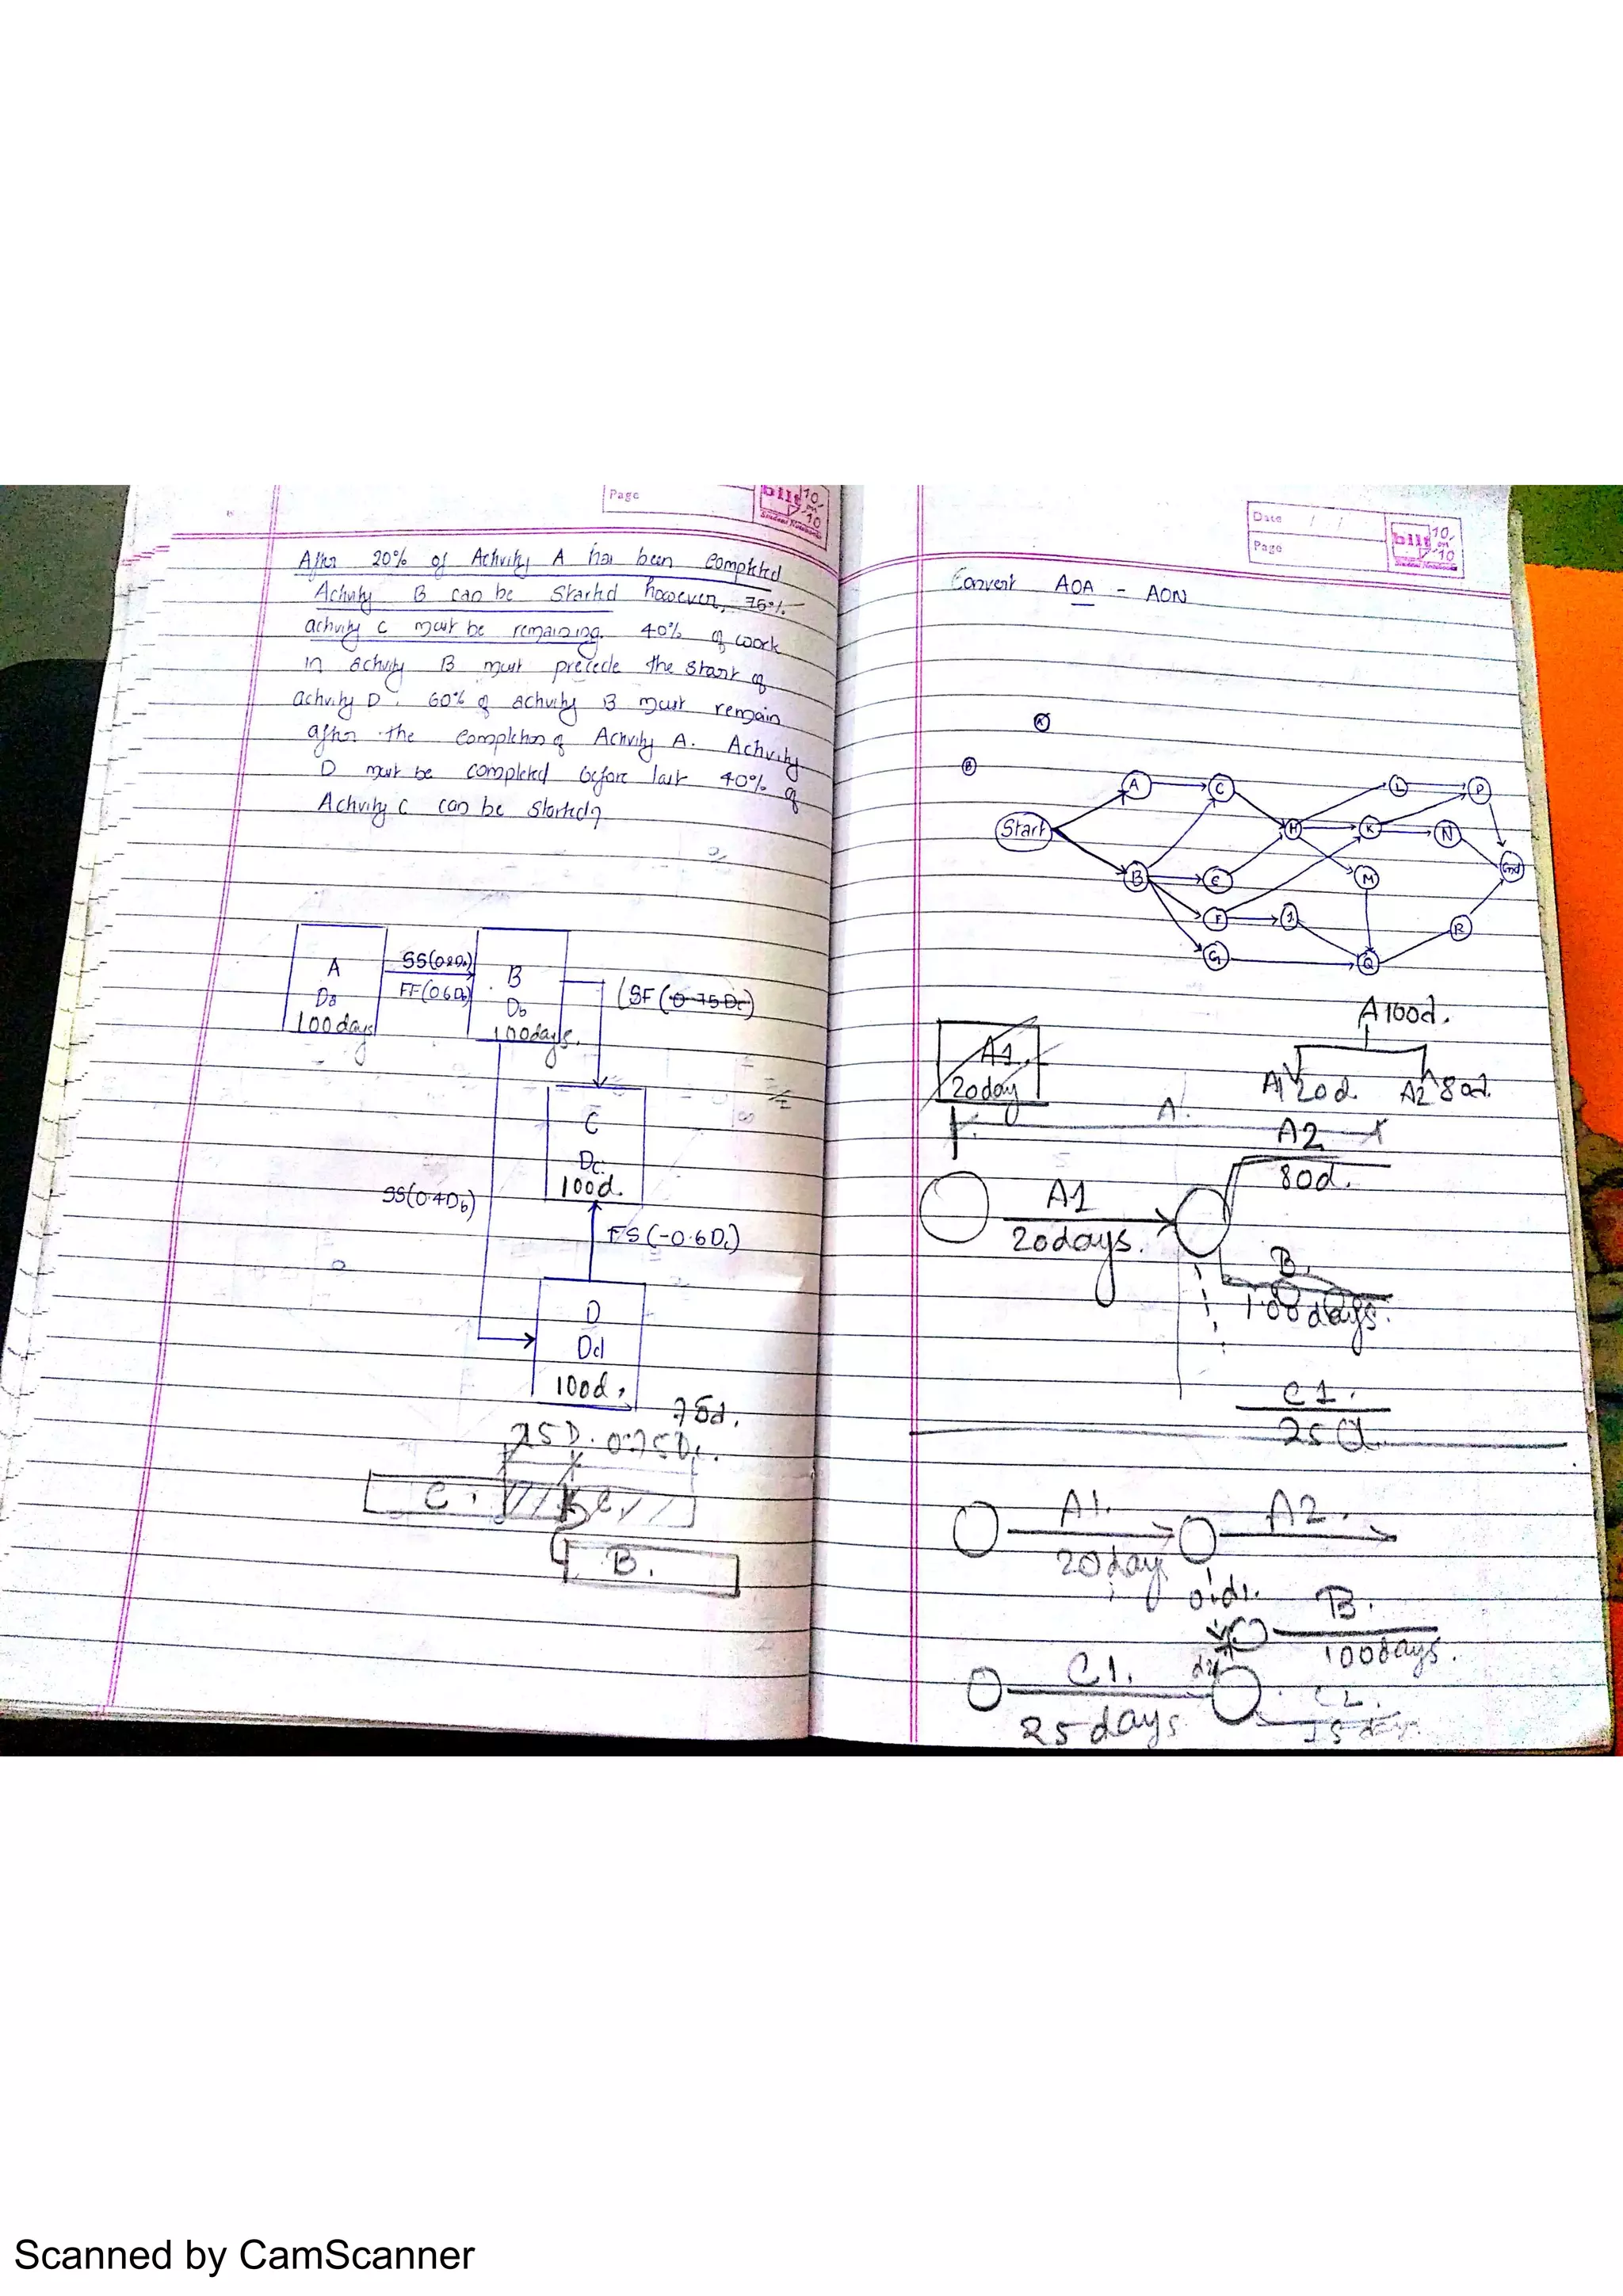 Page
bilt 10 on 10
Student Notebooks
After 20% of Activity A has been completed
Activity B can be started however, 75%
activity C must be remaining. 40% of work
in activity B must precede the start of
activity D. 60% of activity B must remain
after the completion of Activity A. Activity
D must be completed before last 40% of
Activity C can be started?
A
Da
100days
SS(0.2Da)
FF(0.6Db)
B
Db
100days.
SF(0.75Dc)
C
Dc
100d.
SS(0.4Db)
FS(-0.6Dc)
D
Dd
100d.
75d.
25D. 0.75Dc.
C. C.
B.
Date / /
Page
bilt 10 on 10
Student Notebooks
Convert AOA - AON
A
B
Start
A
C
L
P
H
K
N
B
E
M
End
F
I
R
G
Q
A 100d.
A1 20d. A2 80d.
A1.
20day
A.
A2
80d.
A1
20days.
B.
100days.
C1.
25d.
A1.
20day
A2.
0.d1.
B.
100days.
C1.
25days
C2.
Scanned by CamScanner